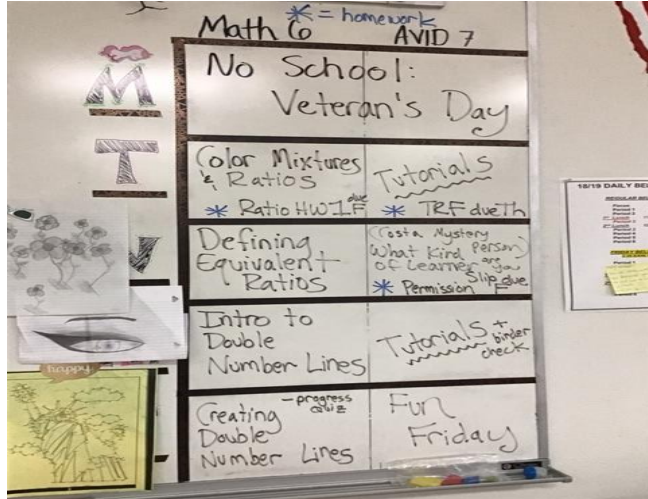 * = homework
Math 6 AVID 7
M
No School:
Veteran's Day
T
Color Mixtures
& Ratios
* Ratio HW 1 due F
Tutorials
* TRF due Th
W
Defining
Equivalent
Ratios
Costa Mystery Person)
(What Kind
of Learner are you
* Permission Slip due F
Intro to
Double
Number Lines
Tutorials + binder check
happy
Creating
Double
Number Lines
- progress quiz
Fun
Friday
18/19 DAILY BE
REGULAR BE